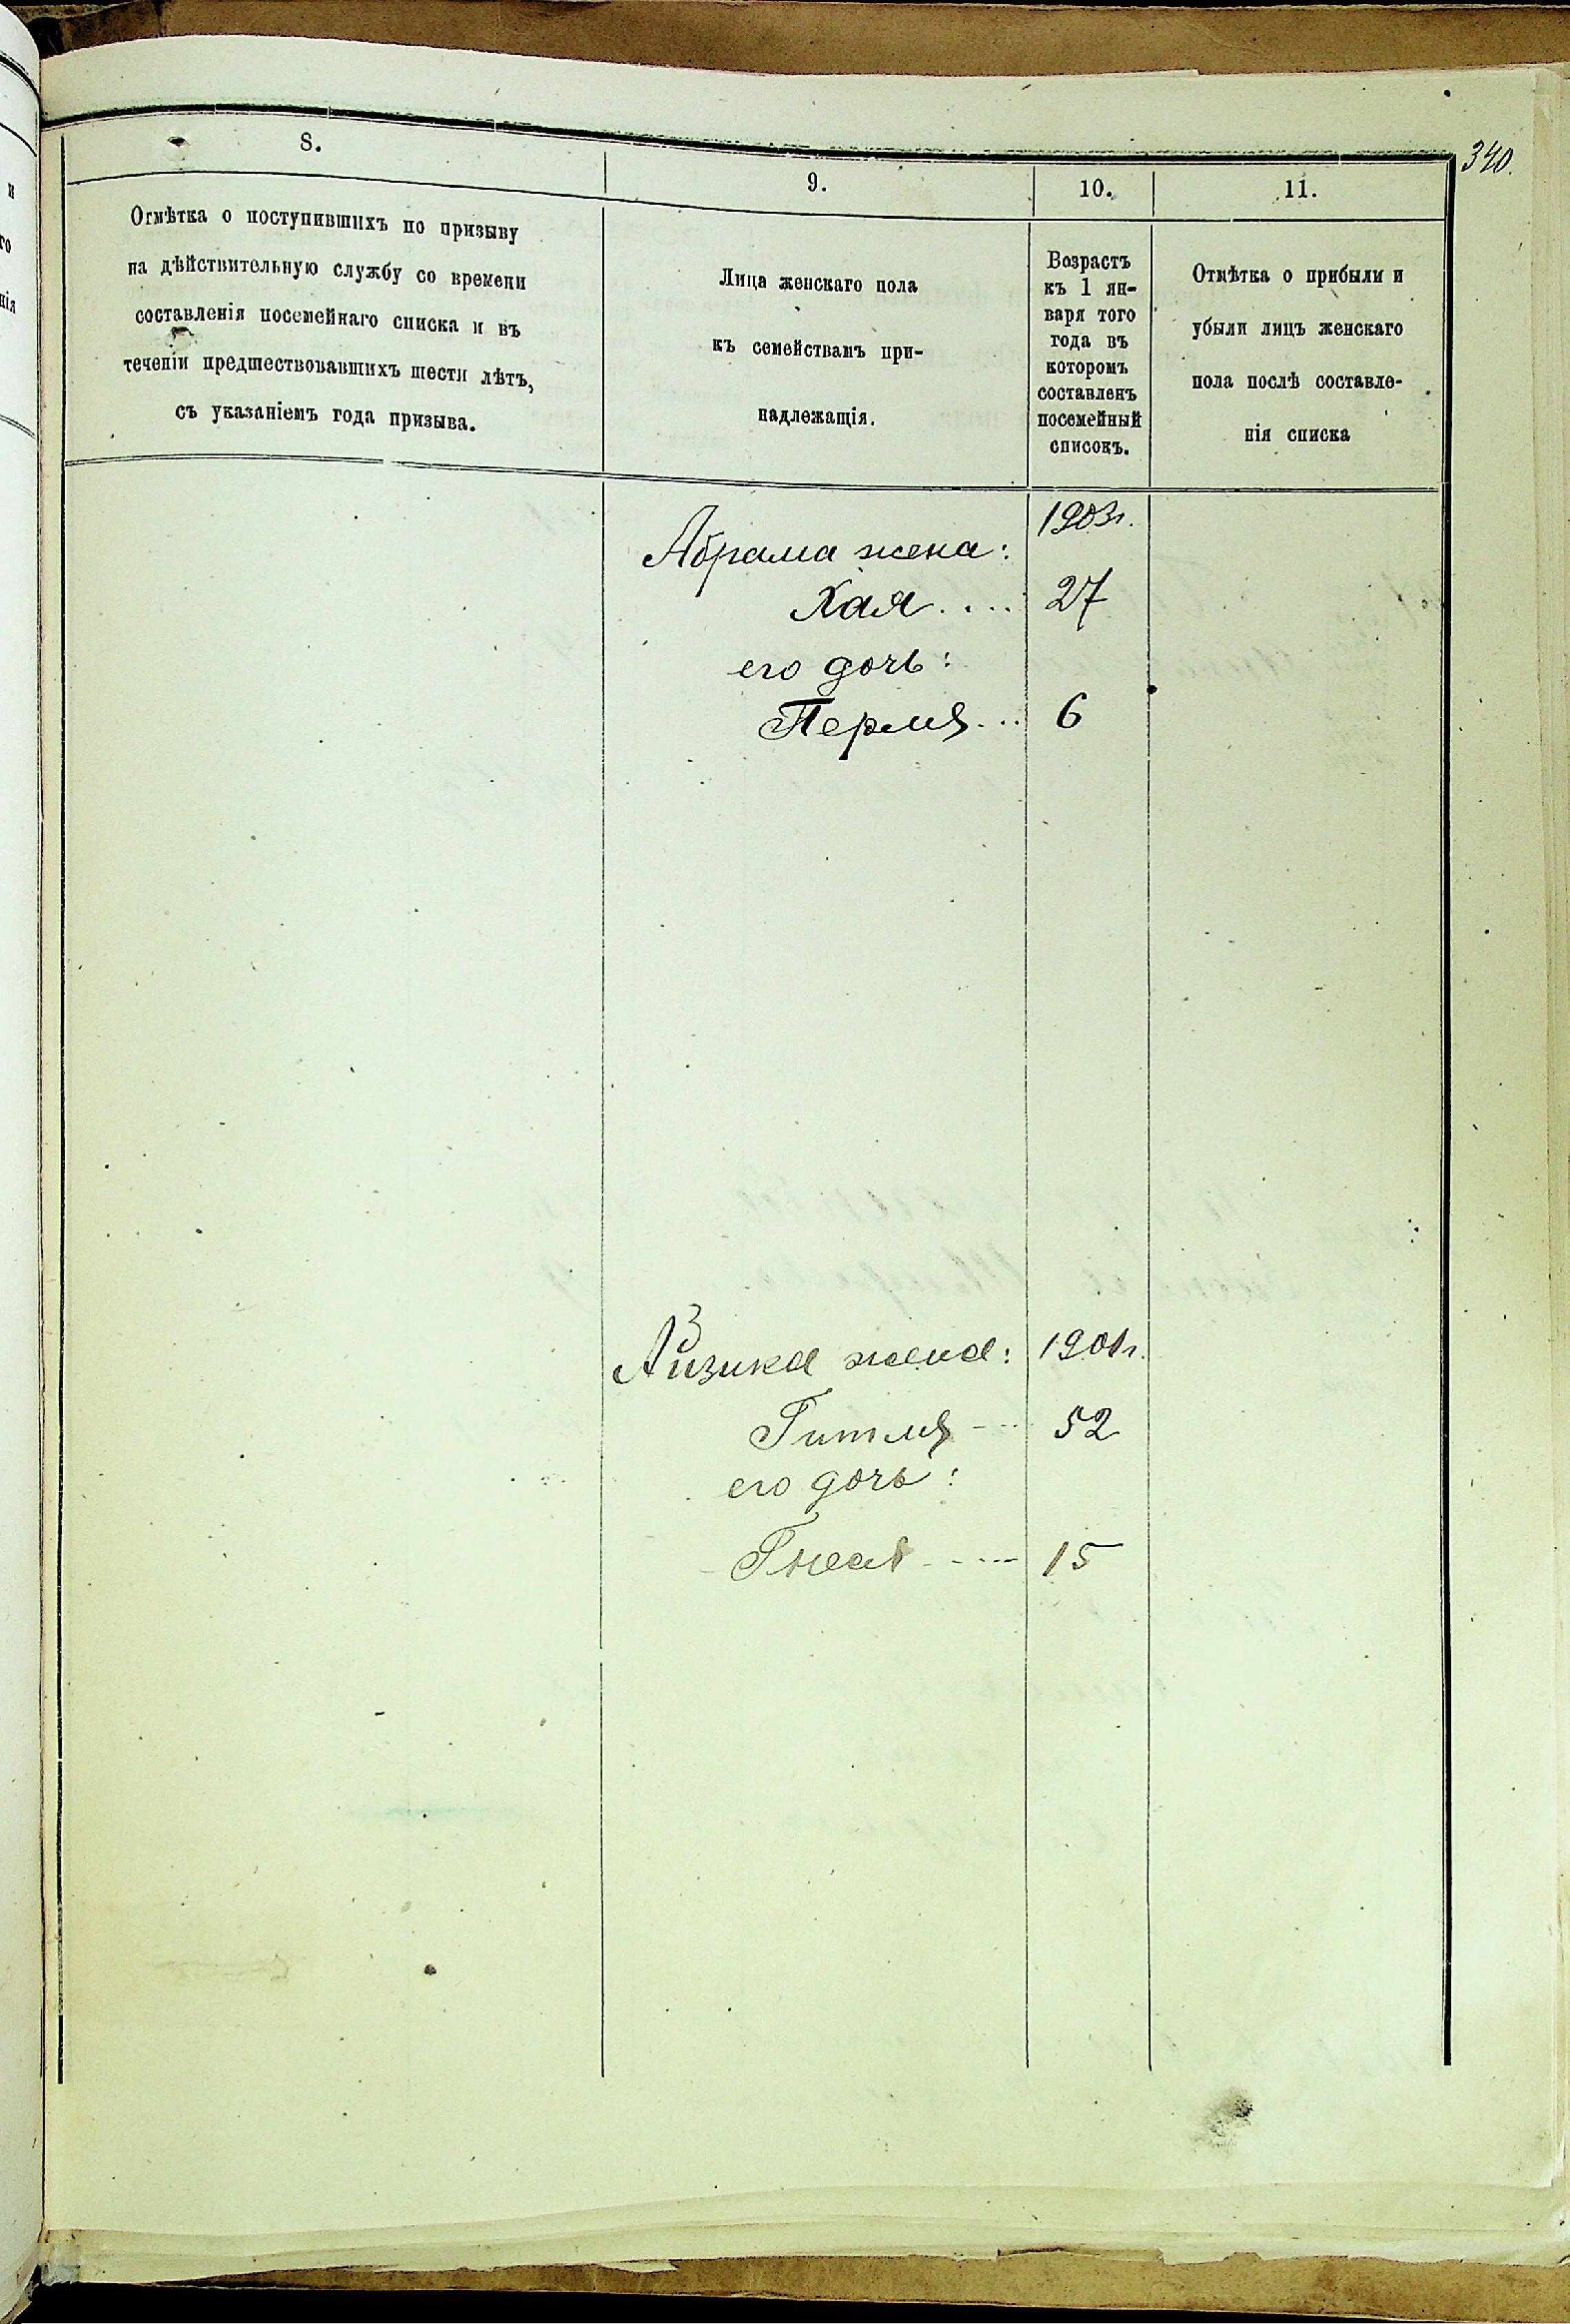 340.
8.
9.
10.
11.
Отмѣтка о поступившихъ по призыву
на дѣйствительную службу со времени
составленія посемейнаго списка и въ
теченіи предшествовавшихъ шести лѣтъ,
съ указаніемъ года призыва.
Лица женскаго пола
къ семействамъ при-
надлежащія.
Возрастъ
къ 1 ян-
варя того
года въ
которомъ
составленъ
посемейный
списокъ.
Отмѣтка о прибыли и
убыли лицъ женскаго
пола послѣ составле-
нія списка
1903г.
Абрама жена:
Хая .... 27
его дочь:
Перля ... 6
Айзика жена: 1901г.
Гитля --- 52
его дочь:
---- 15